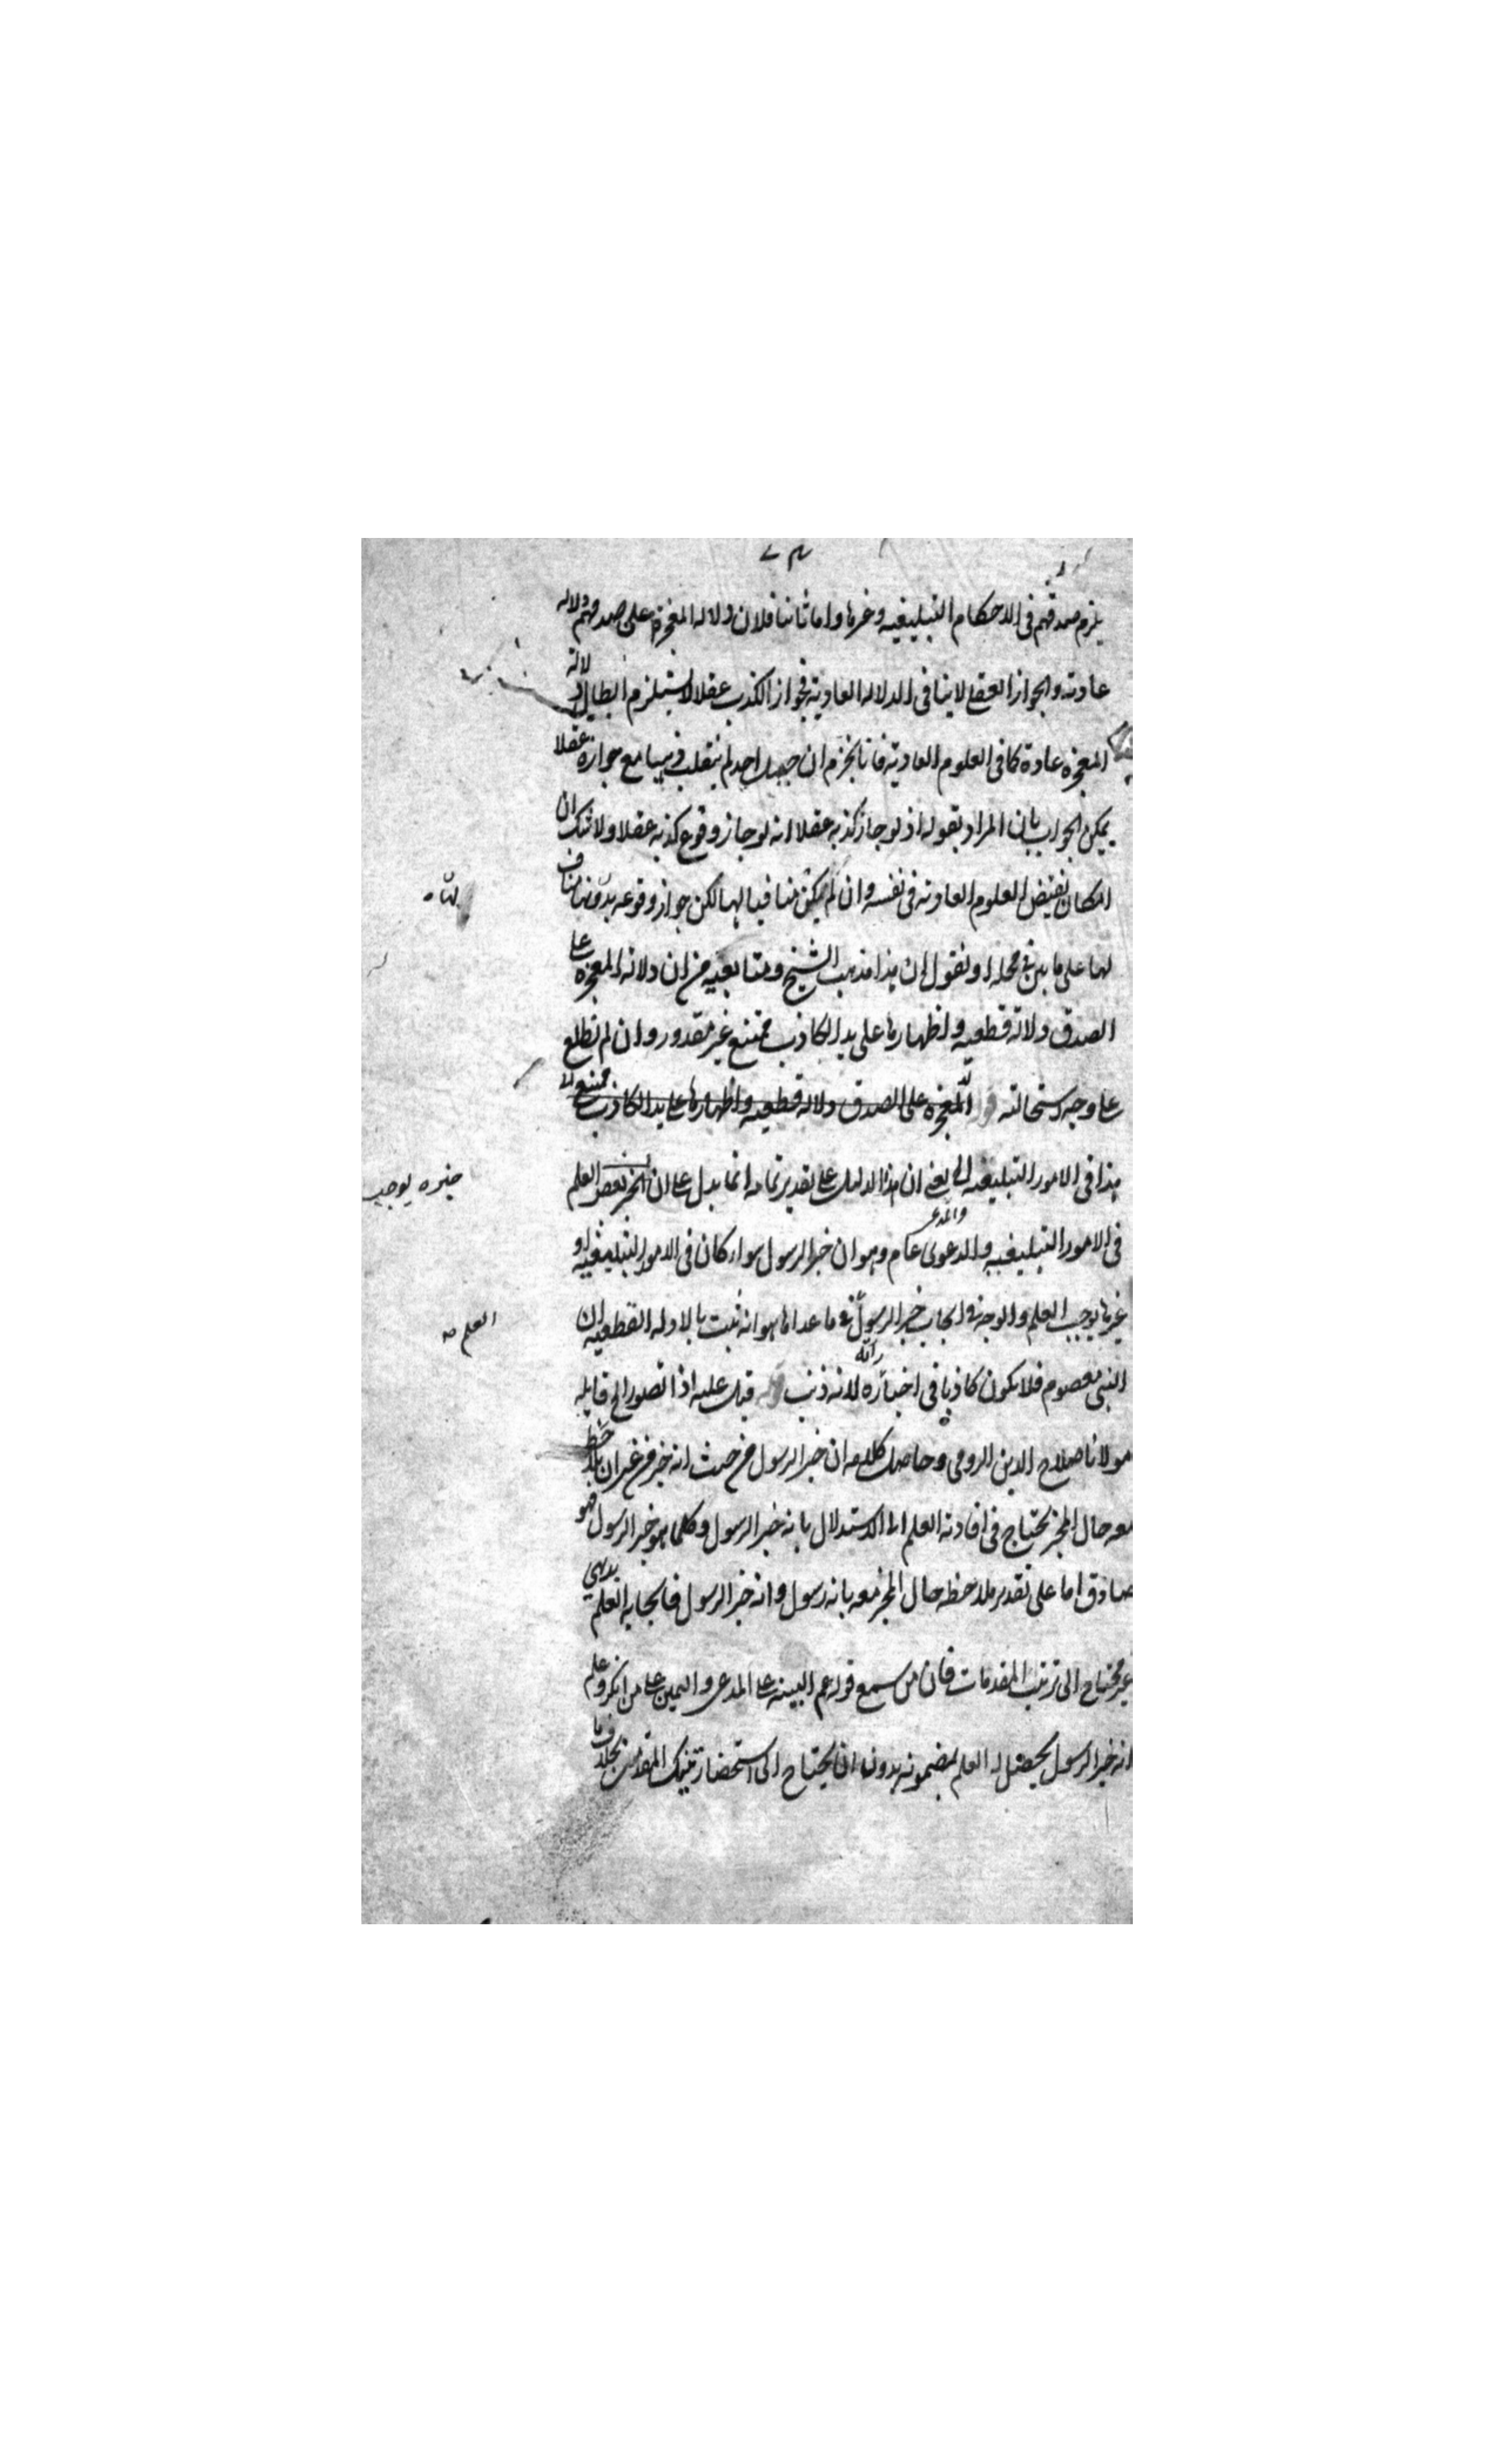 يلزم صدقهم فى الاحكام التبليغيه وغيرها واما ثانيا فلان دلاله المعجزة على صدقهم دلاله
عاديه والجواز العقلى لا ينافى الدلاله العاديه فجواز الكذب عقلا لا يستلزم ابطال دلالة
المعجزه عادة كما فى العلوم العاديه فانا نجزم ان جبل احد لم ينقلب ذهبا مع جوازه عقلا
يمكن الجواب بان المراد بقوله اذ لو جاز كذبه عقلا انه لو جاز وقوع كذبه عقلا ولا شك ان
امكان نقيض العلوم العاديه فى نفسه وان لم يكن منافيا لها لكن جواز وقوعه بدونها مناف
لها على ما بين فى محله او نقول ان هذا مذهب الشيخ ومتابعيه من ان دلالة المعجزه على
الصدق دلالة قطعيه واظهارها على يد الكاذب ممتنع غير مقدور وان لم نطلع
على وجه استحالته المعجزه على الصدق دلاله قطعيه واظهارها على يد الكاذب ممتنع
هذا فى الامور التبليغيه الخ يعنى ان هذا الدليل على تقدير تمامه انما يدل على ان العلم
خبره يوجب
فى الامور التبليغيه والدعوى عام وهو ان خبر الرسول سواء كان فى الامور التبليغيه او
غيرها يوجب العلم والوجه فى ايجاب خبر الرسول فى ما عداها هو انه ثبت بالادله القطعيه ان
العلم
النبى معصوم فلا يكون كاذبا فى اخباره لانه ذنب قيل عليه اذا تصور الخ قايله
مولانا صلاح الدين الرومى وحاصل كلامه ان خبر الرسول من حيث انه خبر من غير ان يلاحظ
معه حال المخبر يحتاج فى افادته العلم الى الاستدلال بانه خبر الرسول وكلما هو خبر الرسول فهو
صادق اما على تقدير ملاحظه حال المخبر معه بانه رسول وانه خبر الرسول فايجابه العلم بديهى
غير محتاج الى ترتيب المقدمات فان من سمع قوله عم البينه على المدعى واليمين على من انكر وعلم
انه خبر الرسول يحصل له العلم بمضمونه بدون ان يحتاج الى استحضار تينك المقدمتين بخلاف ما